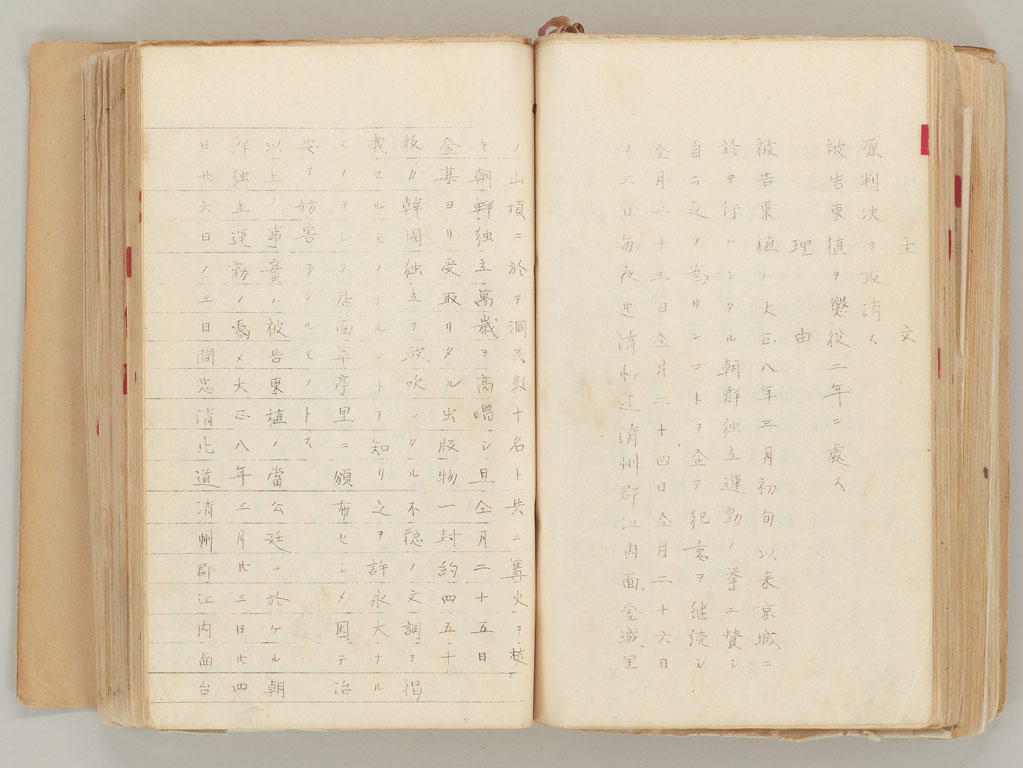 主文
原判決ヲ取消ス
被告東植ヲ懲役二年ニ處ス
理由
被告東植ハ大正八年三月初旬以来京城ニ
於テ行ハレタル朝鮮独立運動ノ挙ニ賛シ
自ラ之ヲ為サンコトヲ企テ犯意ヲ継続シ
仝月二十三日仝月二十四日仝月二十六日
ノ三日毎夜忠清北道清州郡江内面金城里
ノ山頂ニ於テ洞民数十名ト共ニ篝火ヲ焚
キ朝鮮独立萬歳ヲ高唱シ且仝月二十五日
金某ヨリ受取リタル出版物一封約四五十
枚カ韓國独立ヲ鼓吹シタル不穏ノ文詞ヲ掲
載セルモノナルコトヲ知リ之ヲ許永大ナル
モノヲシ 居面 亭里ニ頒布セシメ因テ治
安ヲ妨害シタルモノトス
以上ノ事實ハ被告東植ノ當公廷ニ於ケル朝
鮮独立運動ノ為メ大正八年三月廿三日廿四
日廿六日ノ三日間忠清北道清州郡江内面台